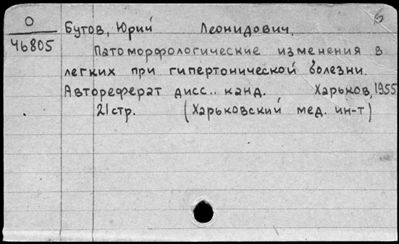 О
46805
Бутов, Юрий Леонидович,
Патоморфологические изменения в
легких при гипертонической болезни.
Автореферат дисс.. канд. Харьков, 1955
21стр. (Харьковский мед. ин-т)